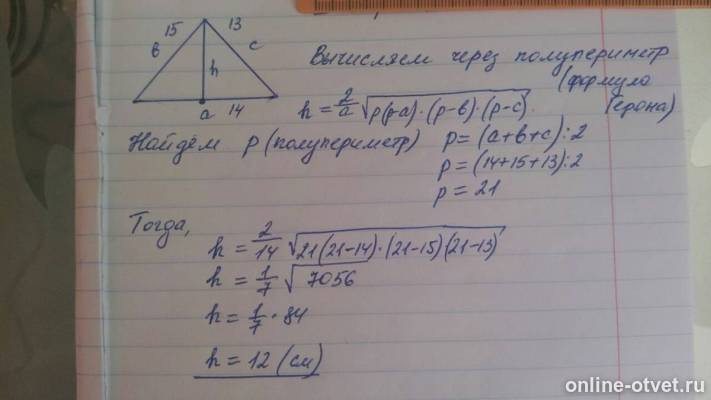 15 13
в c
h
a 14
Вычисляем через полупериметр
(формула
Герона)
h = 2/a √p(p-a)·(p-в)·(p-c)
Найдём p (полупериметр) p = (a+в+c):2
p = (14+15+13):2
p = 21
Тогда,
h = 2/14 √21(21-14)·(21-15)(21-13)
h = 1/7 √7056
h = 1/7 · 84
h = 12 (см)
online-otvet.ru